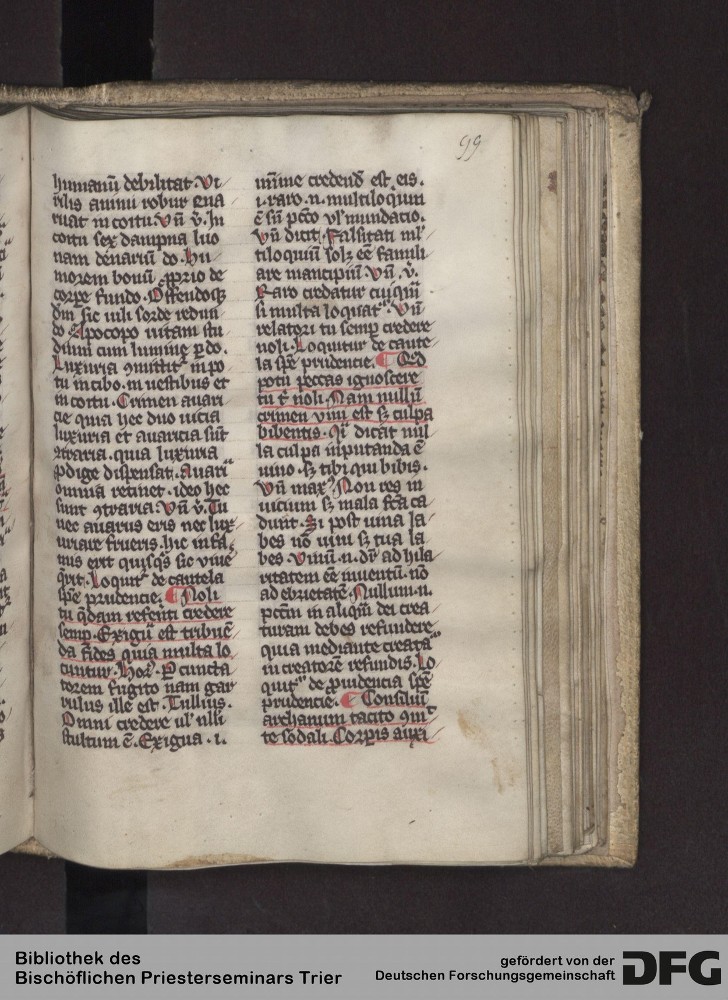 99
humanū debilitat. Vi
rilis animi robur ena
ruat in coitu. Vñ v̄. In
coitu sex dampna luo
nam denariū do. Hu
morem bonū ꝓprio de
corꝑe fundo. Offendoqꝫ
dm̄ sic
do Apocopo uitam stu
dium cum lumine ꝑdo.
Luxuria ꝯmittit in po
tu in cibo. in uestibus et
in coitu. Crimen auari
cie quia hec duo uicia
luxuria et auaricia sūt
ꝯtraria. quia luxuria
ꝓdige dispensat. Auari
omnia retinet. ideo hec
sunt ꝯtraria. Vñ v̄. Tu
nec auarus eris nec lux
uriare
mis erit quisqꝫ sic uiue
q̄rit. Loquit de cautela
spē prudencie. ¶ Noli
tu q̄dam referēti credere
semp. Exigū est tribuē
da fides quia multa lo
cuntur. Hor. P cuncta
torem fugito nam gar
rulus ille est. Tullius.
Omni credere ul' nlli
stultum ē. Exigua .i.
mīme credend est eis.
.i. raro .n. multiloquiū
ē sn̄ pctō ul' mundacio.
Vñ dicit. Falsitati ml'
tiloquiū solꝫ eē famili
are mancipiū. Vñ .v̄.
Raro credatur cuiquā
si multa loquat. Vñ
relatori tu semp credere
noli. Loquitur de caute
la spē prudencie. ¶ Qd
potu peccas ignoscere
tu t̄ noli. Nam nullū
crimen vini est sꝫ culpa
bibentis. Qi dicat nul
la culpa inputanda ē
uino. sꝫ tibi qui bibis.
Vñ max. Non res in
uicium sꝫ mala fca ca
dunt. Si post uina la
bes nō vini sꝫ tua la
bes. Vinū .n. dr̄ ad hila
ritatem eē inuentū. nō
ad ebrietatē. Nullum .n.
pctm̄ in aliqūi dei crea
turam debes refundere
quia mediante creata
in creatorē refundis. Lo
quit de ꝓuidencia spē
prudencie. ¶ Consiliū
archanum tacito ꝯmit
te sodali. Corꝑis auxi
Bibliothek des
Bischöflichen Priesterseminars Trier
gefördert von der
Deutschen Forschungsgemeinschaft
DFG